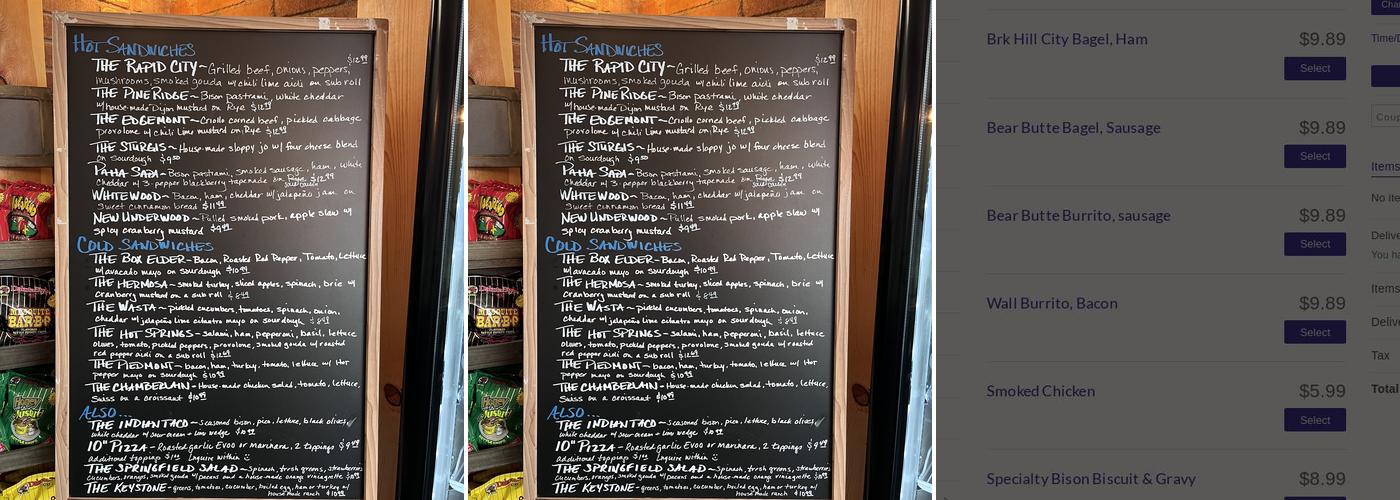 HOT SANDWICHES
THE RAPID CITY~Grilled beef, onions, peppers, $12.99
mushrooms, smoked gouda w/chili lime aioli on sub roll
THE PINE RIDGE~Bison pastrami, white cheddar
w/house-made Dijon mustard on Rye $12.99
THE EDGEMONT~Criollo corned beef, pickled cabbage
provolone w/ chili lime mustard on Rye $12.99
THE STURGIS~House-made sloppy jo w/ four cheese blend
on sourdough $9.50
PAHA SAPA~Bison pastrami, smoked sausage, ham, white
cheddar w/ 3-pepper blackberry tapenade on Rye $12.99
sourdough
WHITEWOOD~Bacon, ham, cheddar w/jalapeño jam on
sweet cinnamon bread $11.99
NEW UNDERWOOD~Pulled smoked pork, apple slaw w/
spicy cranberry mustard $9.99
COLD SANDWICHES
THE BOX ELDER-Bacon, Roasted Red Pepper, Tomato, Lettuce
w/avacado mayo on sourdough $10.99
THE HERMOSA~smoked turkey, sliced apples, spinach, brie w/
cranberry mustard on a sub roll $8.99
THE WASTA~pickled cucumbers, tomatoes, spinach, onion,
cheddar w/ jalapeño lime cilantro mayo on sourdough $8.99
THE HOT SPRINGS-salami, ham, pepperoni, basil, lettuce
olives, tomato, pickled peppers, provolone, smoked gouda w/ roasted
red pepper aioli on a sub roll $12.49
THE PIEDMONT~bacon, ham, turkey, tomato, lettuce w/ Hot
pepper mayo on sourdough $10.99
THE CHAMBERLAIN-House-made chicken salad, tomato, lettuce,
Swiss on a croissant $10.99
ALSO...
THE INDIAN TACO~Seasoned bison, pico, lettuce, black olives,
white cheddar w/ sour cream + lime wedge $10.99
10" PIZZA-Roasted garlic EVOO or marinara, 2 toppings $9.99
Additional toppings $1.00 Inquire within
THE SPRINGFIELD SALAD~Spinach, fresh greens, strawberries
cucumbers, oranges, smoked gouda w/ pecans and a house-made orange vinaigrette
THE KEYSTONE-greens, tomatoes, cucumber, boiled egg, ham or turkey w/
house made ranch $10.99
HOT SANDWICHES
THE RAPID CITY~Grilled beef, onions, peppers, $12.99
mushrooms, smoked gouda w/chili lime aioli on sub roll
THE PINE RIDGE~Bison pastrami, white cheddar
w/house-made Dijon mustard on Rye $12.99
THE EDGEMONT~Criollo corned beef, pickled cabbage
provolone w/ chili lime mustard on Rye $12.99
THE STURGIS~House-made sloppy jo w/ four cheese blend
on sourdough $9.50
PAHA SAPA~Bison pastrami, smoked sausage, ham, white
cheddar w/ 3-pepper blackberry tapenade on Rye $12.99
sourdough
WHITEWOOD~Bacon, ham, cheddar w/jalapeño jam on
sweet cinnamon bread $11.99
NEW UNDERWOOD~Pulled smoked pork, apple slaw w/
spicy cranberry mustard $9.99
COLD SANDWICHES
THE BOX ELDER-Bacon, Roasted Red Pepper, Tomato, Lettuce
w/avacado mayo on sourdough $10.99
THE HERMOSA~smoked turkey, sliced apples, spinach, brie w/
cranberry mustard on a sub roll $8.99
THE WASTA~pickled cucumbers, tomatoes, spinach, onion,
cheddar w/ jalapeño lime cilantro mayo on sourdough $8.99
THE HOT SPRINGS-salami, ham, pepperoni, basil, lettuce
olives, tomato, pickled peppers, provolone, smoked gouda w/ roasted
red pepper aioli on a sub roll $12.49
THE PIEDMONT~bacon, ham, turkey, tomato, lettuce w/ Hot
pepper mayo on sourdough $10.99
THE CHAMBERLAIN-House-made chicken salad, tomato, lettuce,
Swiss on a croissant $10.99
ALSO...
THE INDIAN TACO~Seasoned bison, pico, lettuce, black olives,
white cheddar w/ sour cream + lime wedge $10.99
10" PIZZA-Roasted garlic EVOO or marinara, 2 toppings $9.99
Additional toppings $1.00 Inquire within
THE SPRINGFIELD SALAD~Spinach, fresh greens, strawberries
cucumbers, oranges, smoked gouda w/ pecans and a house-made orange vinaigrette
THE KEYSTONE-greens, tomatoes, cucumber, boiled egg, ham or turkey w/
house made ranch $10.99
Brk Hill City Bagel, Ham $9.89
Select
Bear Butte Bagel, Sausage $9.89
Select
Bear Butte Burrito, sausage $9.89
Select
Wall Burrito, Bacon $9.89
Select
Smoked Chicken $5.99
Select
Specialty Bison Biscuit & Gravy $8.99
Time/D
Coup
Items
No ite
Delive
You ha
Items
Delive
Tax
Total